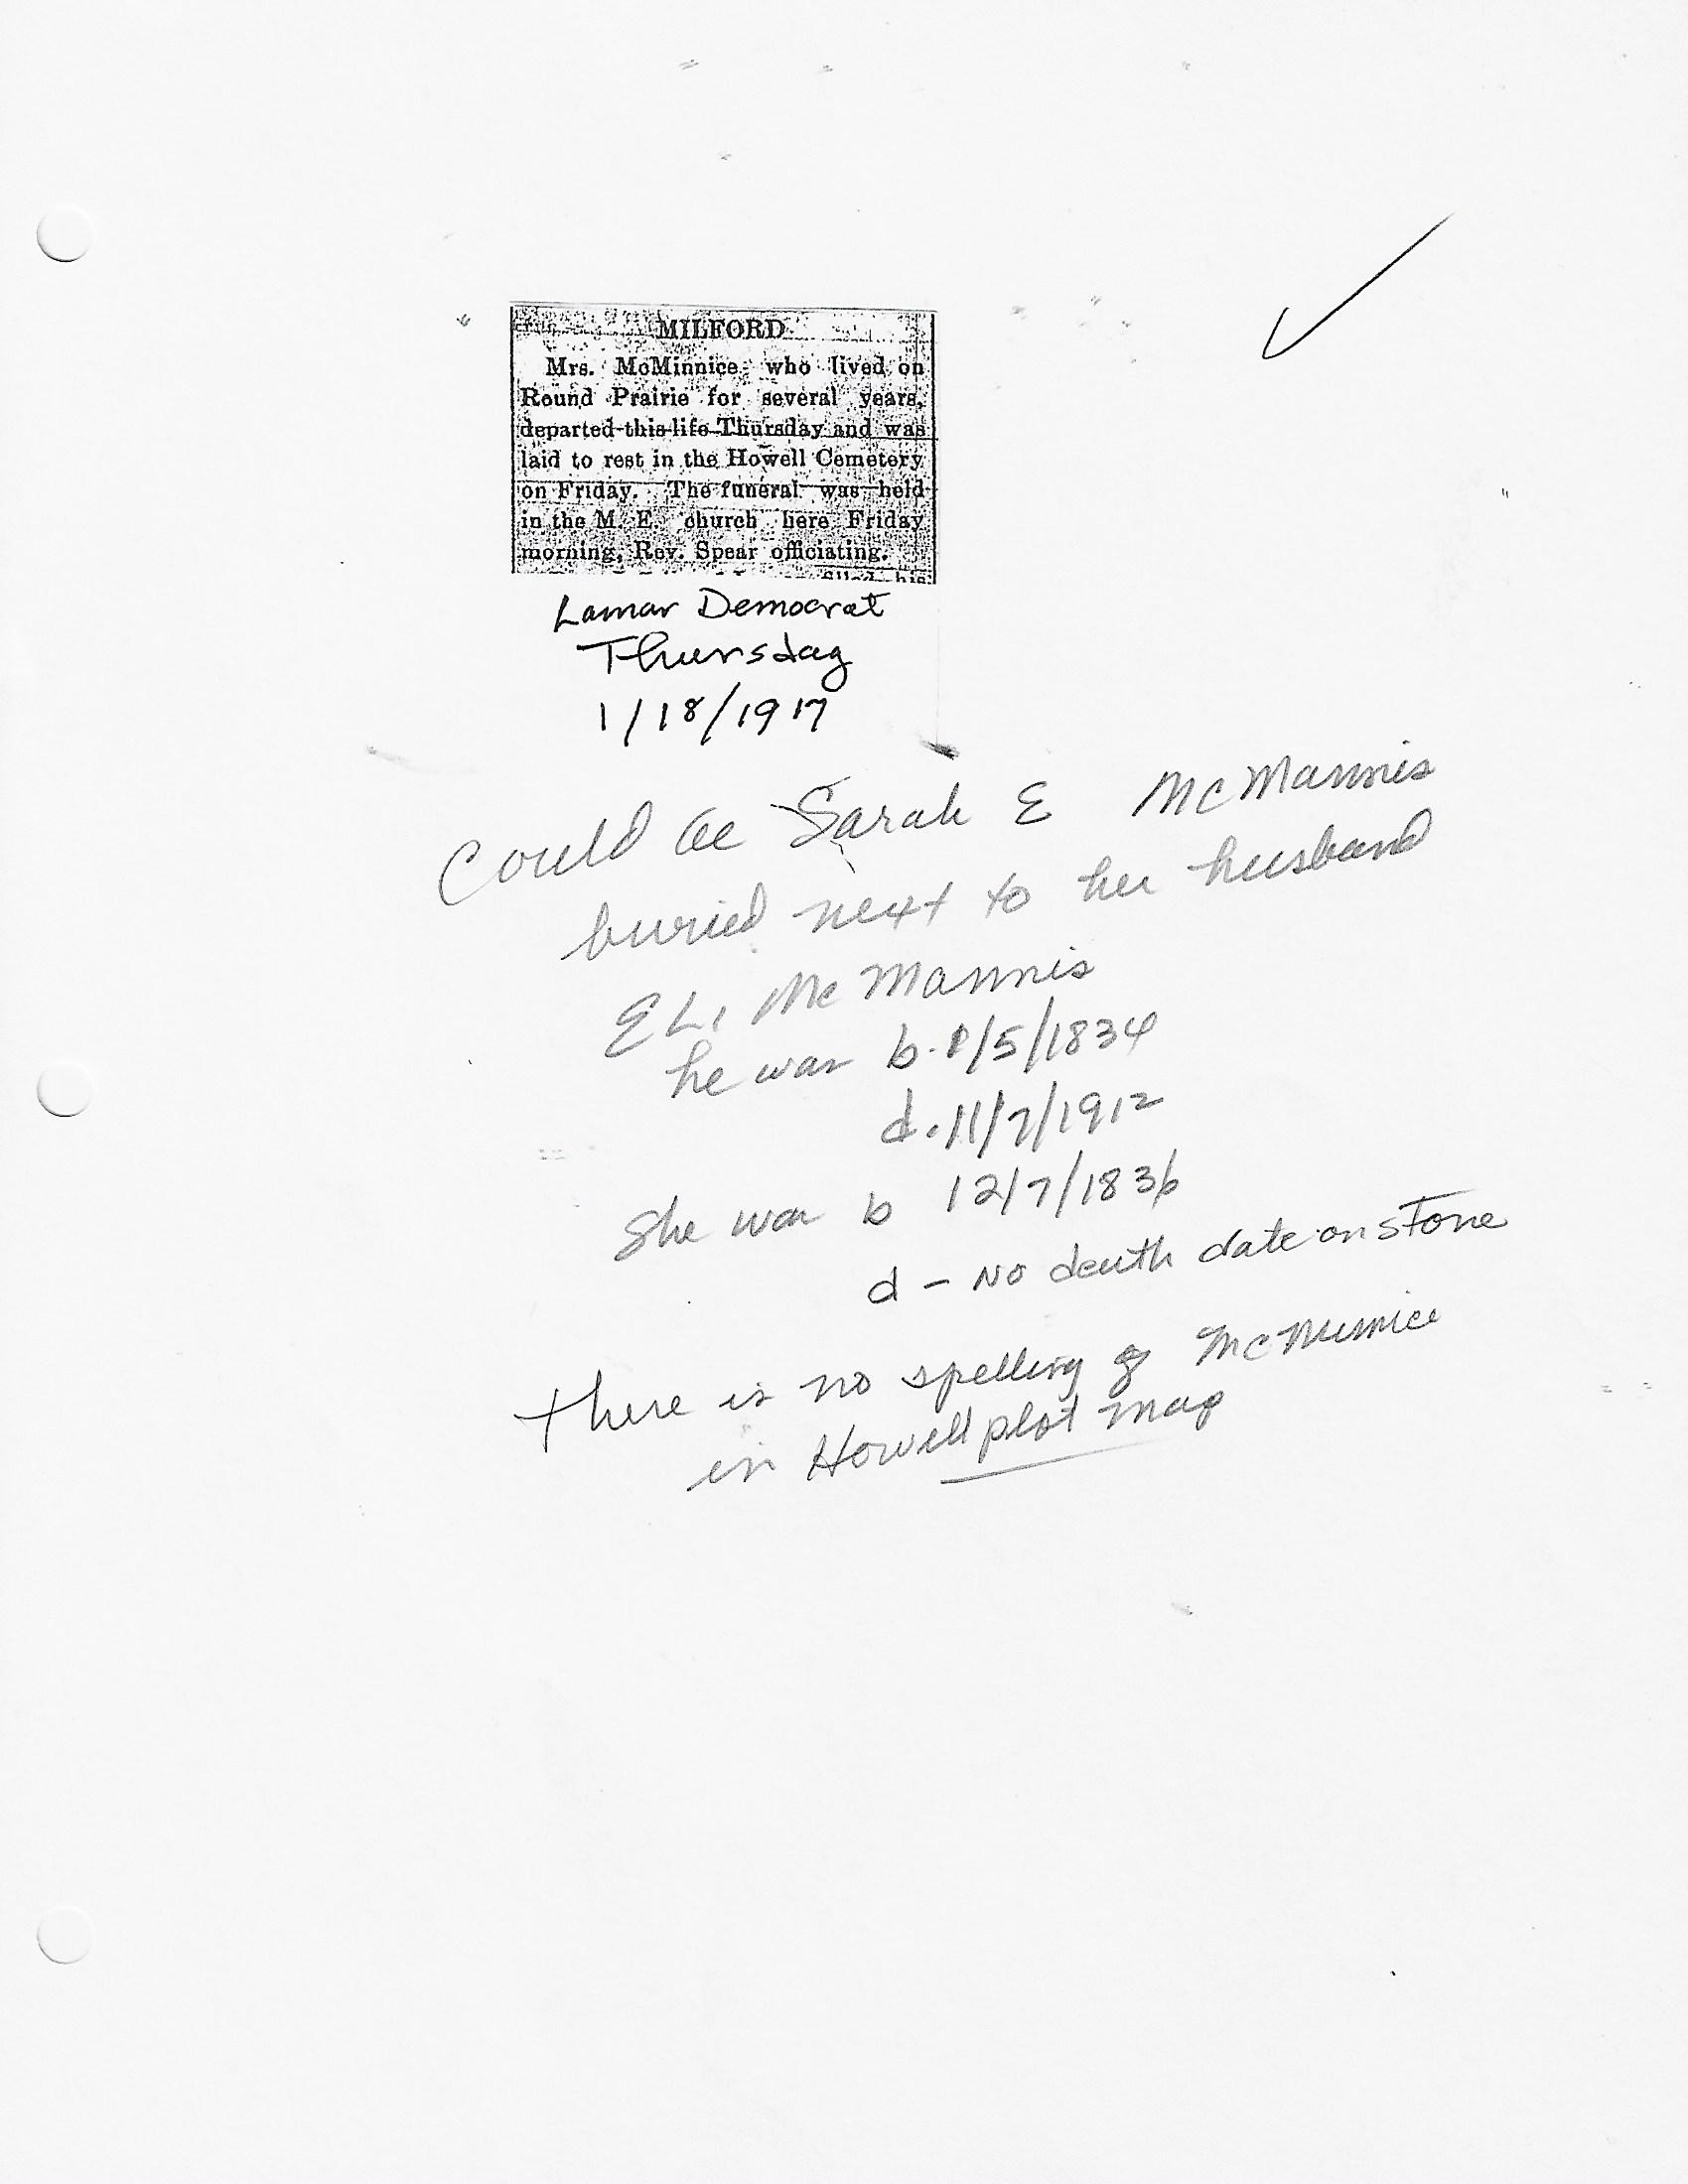 MILFORD
Mrs. McMinnice who lived on
Round Prairie for several years,
departed this life Thursday and was
laid to rest in the Howell Cemetery
on Friday. The funeral was held
in the M. E. church here Friday
morning, Rev. Spear officiating.
filed his
Lamar Democrat
Thursday
1/18/1917
Could be Sarah E McMannis
buried next to her husband
ELI McMannis
he was b. 1/5/1834
d. 11/7/1912
She was b 12/7/1836
d - No death date on stone
There is no spelling of
in Howell plot map